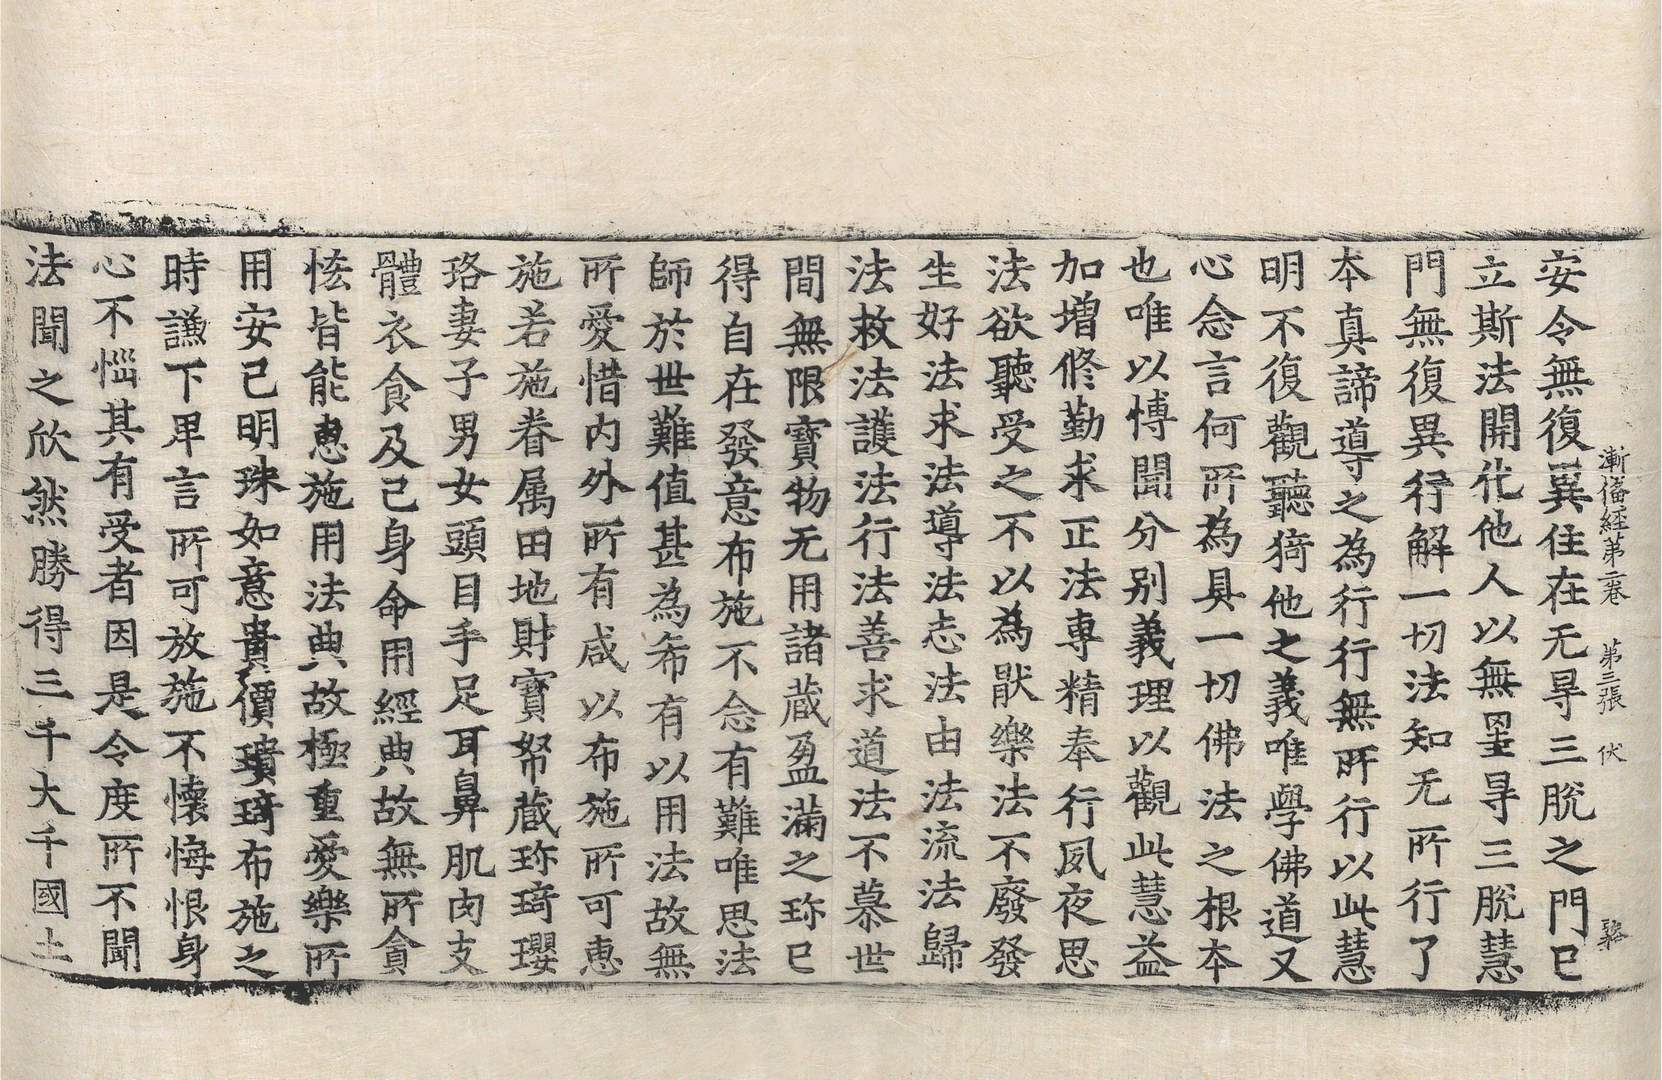 漸俻經第二卷　第三張　伏
安令無復異住在无㝵三脫之門已
立斯法開化他人以無罣㝵三脫慧
門無復異行解一切法知无所行了
本真諦導之為行行無所行以此慧
明不復觀聽猗他之義唯學佛道又
心念言何所為具一切佛法之根本
也唯以博聞分别義理以觀此慧益
加增修勤求正法專精奉行夙夜思
法欲聽受之不以為猒樂法不廢發
生好法求法導法志法由法流法歸
法救法護法行法善求道法不慕世
間無限寶物无用諸蔵盈滿之珎已
得自在發意布施不念有難唯思法
師於世難值甚為布有以用法故無
所愛惜内外所有咸以布施所可惠
施若施眷属田地財寶帑蔵珎琦瓔
珞妻子男女頭目手足耳鼻肌肉支
體衣食及己身命用經典故無所貪
恡皆能惠施用法典故極重愛樂所
用安己明珠如意貴價瓌琦布施之
時謙下卑言所可放施不懷悔恨身
心不惱其有受者因是令度所不聞
法聞之欣然勝得三千大千國土